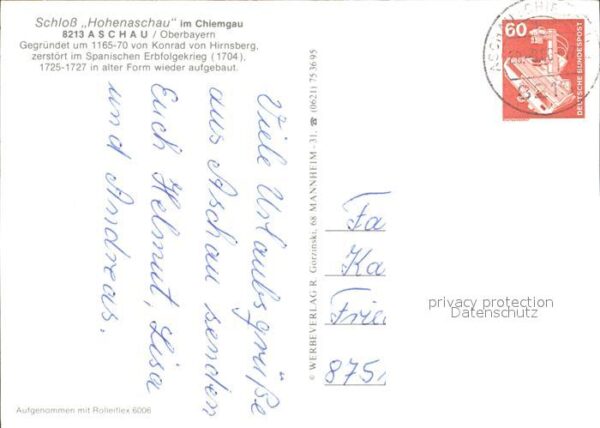 Schloß „Hohenaschau" im Chiemgau
8213 ASCHAU / Oberbayern
Gegründet um 1165-70 von Konrad von Hirnsberg,
zerstört im Spanischen Erbfolgekrieg (1704),
1725-1727 in alter Form wieder aufgebaut.
Viele Urlaubsgrüße
aus Aschau senden
Euch Helmut, Lisa
und Andreas.
© WERBEVERLAG R. Gorzinski, 68 MANNHEIM - 31, ☎ (0621) 75 36 95
60
DEUTSCHE BUNDESPOST
Fa
Ka
Frie
875
privacy protection
Datenschutz
Aufgenommen mit Rolleiflex 6006